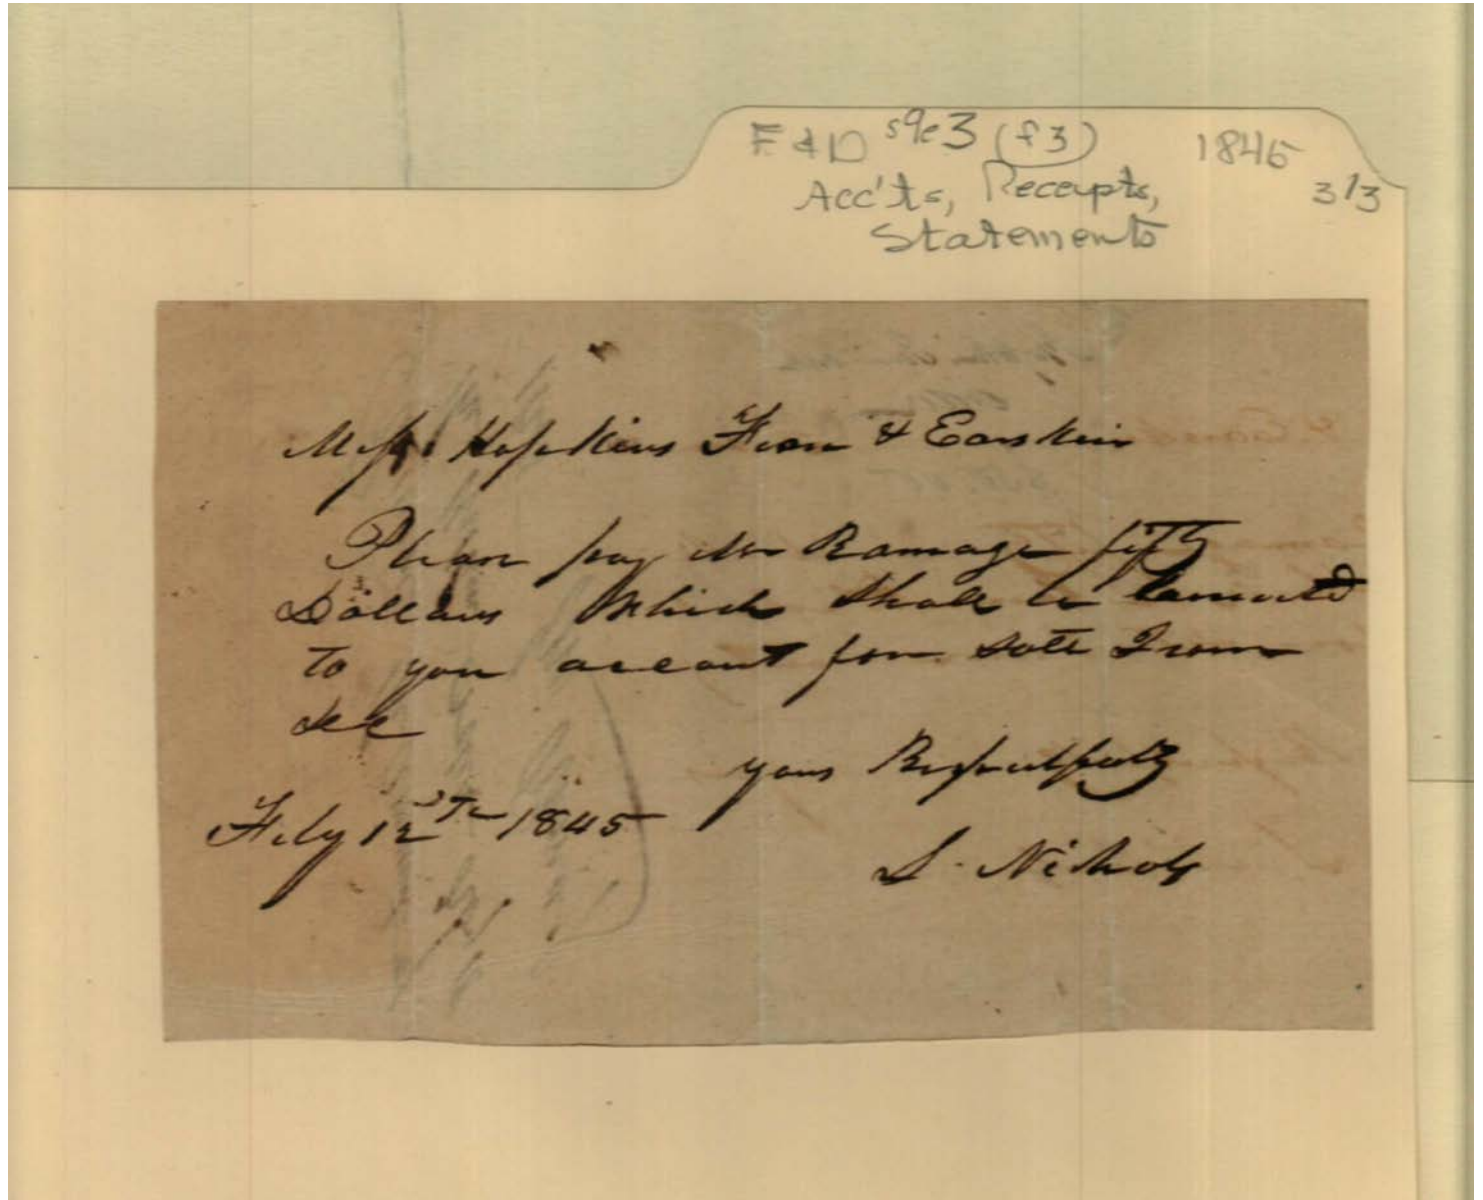 F & D s9e3 (f3) 1845
3/3
Acc'ts, Receipts,
Statements
Mess Hopkins Fern & Earskin
Please pay Mr Ramage fifty
Dollars Which Shall be
to your account for
&c
yours Respectfully
Feby 12th 1845
S. Nichols